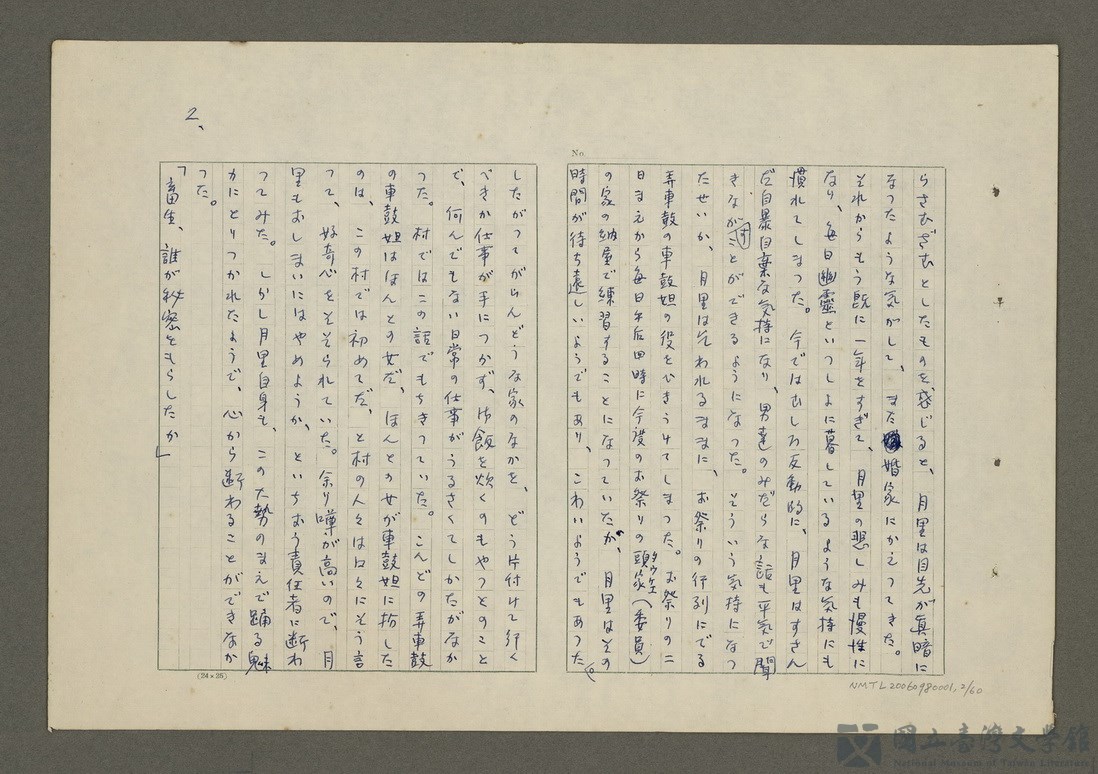 2、
No
らさむざむとしたものを感じると、月里は目先が真暗に
なつたような気がして、また婚家にかえつてきた。
それからもう既に一年をすぎて、月里の悲しみも慢性に
なり、毎日幽霊といつしよに暮しているような気持にも
慣れてしまつた。今ではむしろ反動的に、月里はすさん
だ自暴自棄な気持になり、男達のみだらな話も平気で聞
きながすことができるようになつた。そういう気持になつ
たせいか、月里は云われるままに、お祭りの行列にでる
弄車鼓の車鼓妲の役をひきうけてしまつた。お祭りの二
日まえから毎日午后四時に今度のお祭りの頭家(委員)
の家の納屋で練習することになつていたが、月里はその
時間が待ち遠しいようでもあり、こわいようでもあつた。
したがつてがらんどうな家のなかを、どう片付けて行く
べきか仕事が手につかず、御飯を炊くのもやつとのこと
で、何んでもない日常の仕事がうるさくてしかたがなか
つた。村ではこの話でもちきつていた。こんどの弄車鼓
の車鼓妲はほんとの女だ、ほんとの女が車鼓妲に扮した
のは、この村では初めてだ、と村の人々は口々にそう言
つて、好奇心をそそられていた。余り噂が高いので、月
里もおしまいにはやめようか、といちおう責任者に断わ
つてみた。しかし月里自身も、この大勢のまえで踊る魅
力にとりつかれたようで、心から断わることができなか
つた。
「畜生、誰が秘密をもらしたか」
(24×25)
NMTL20060980001,2/60
國立臺灣文學館
National Museum of Taiwan Literature